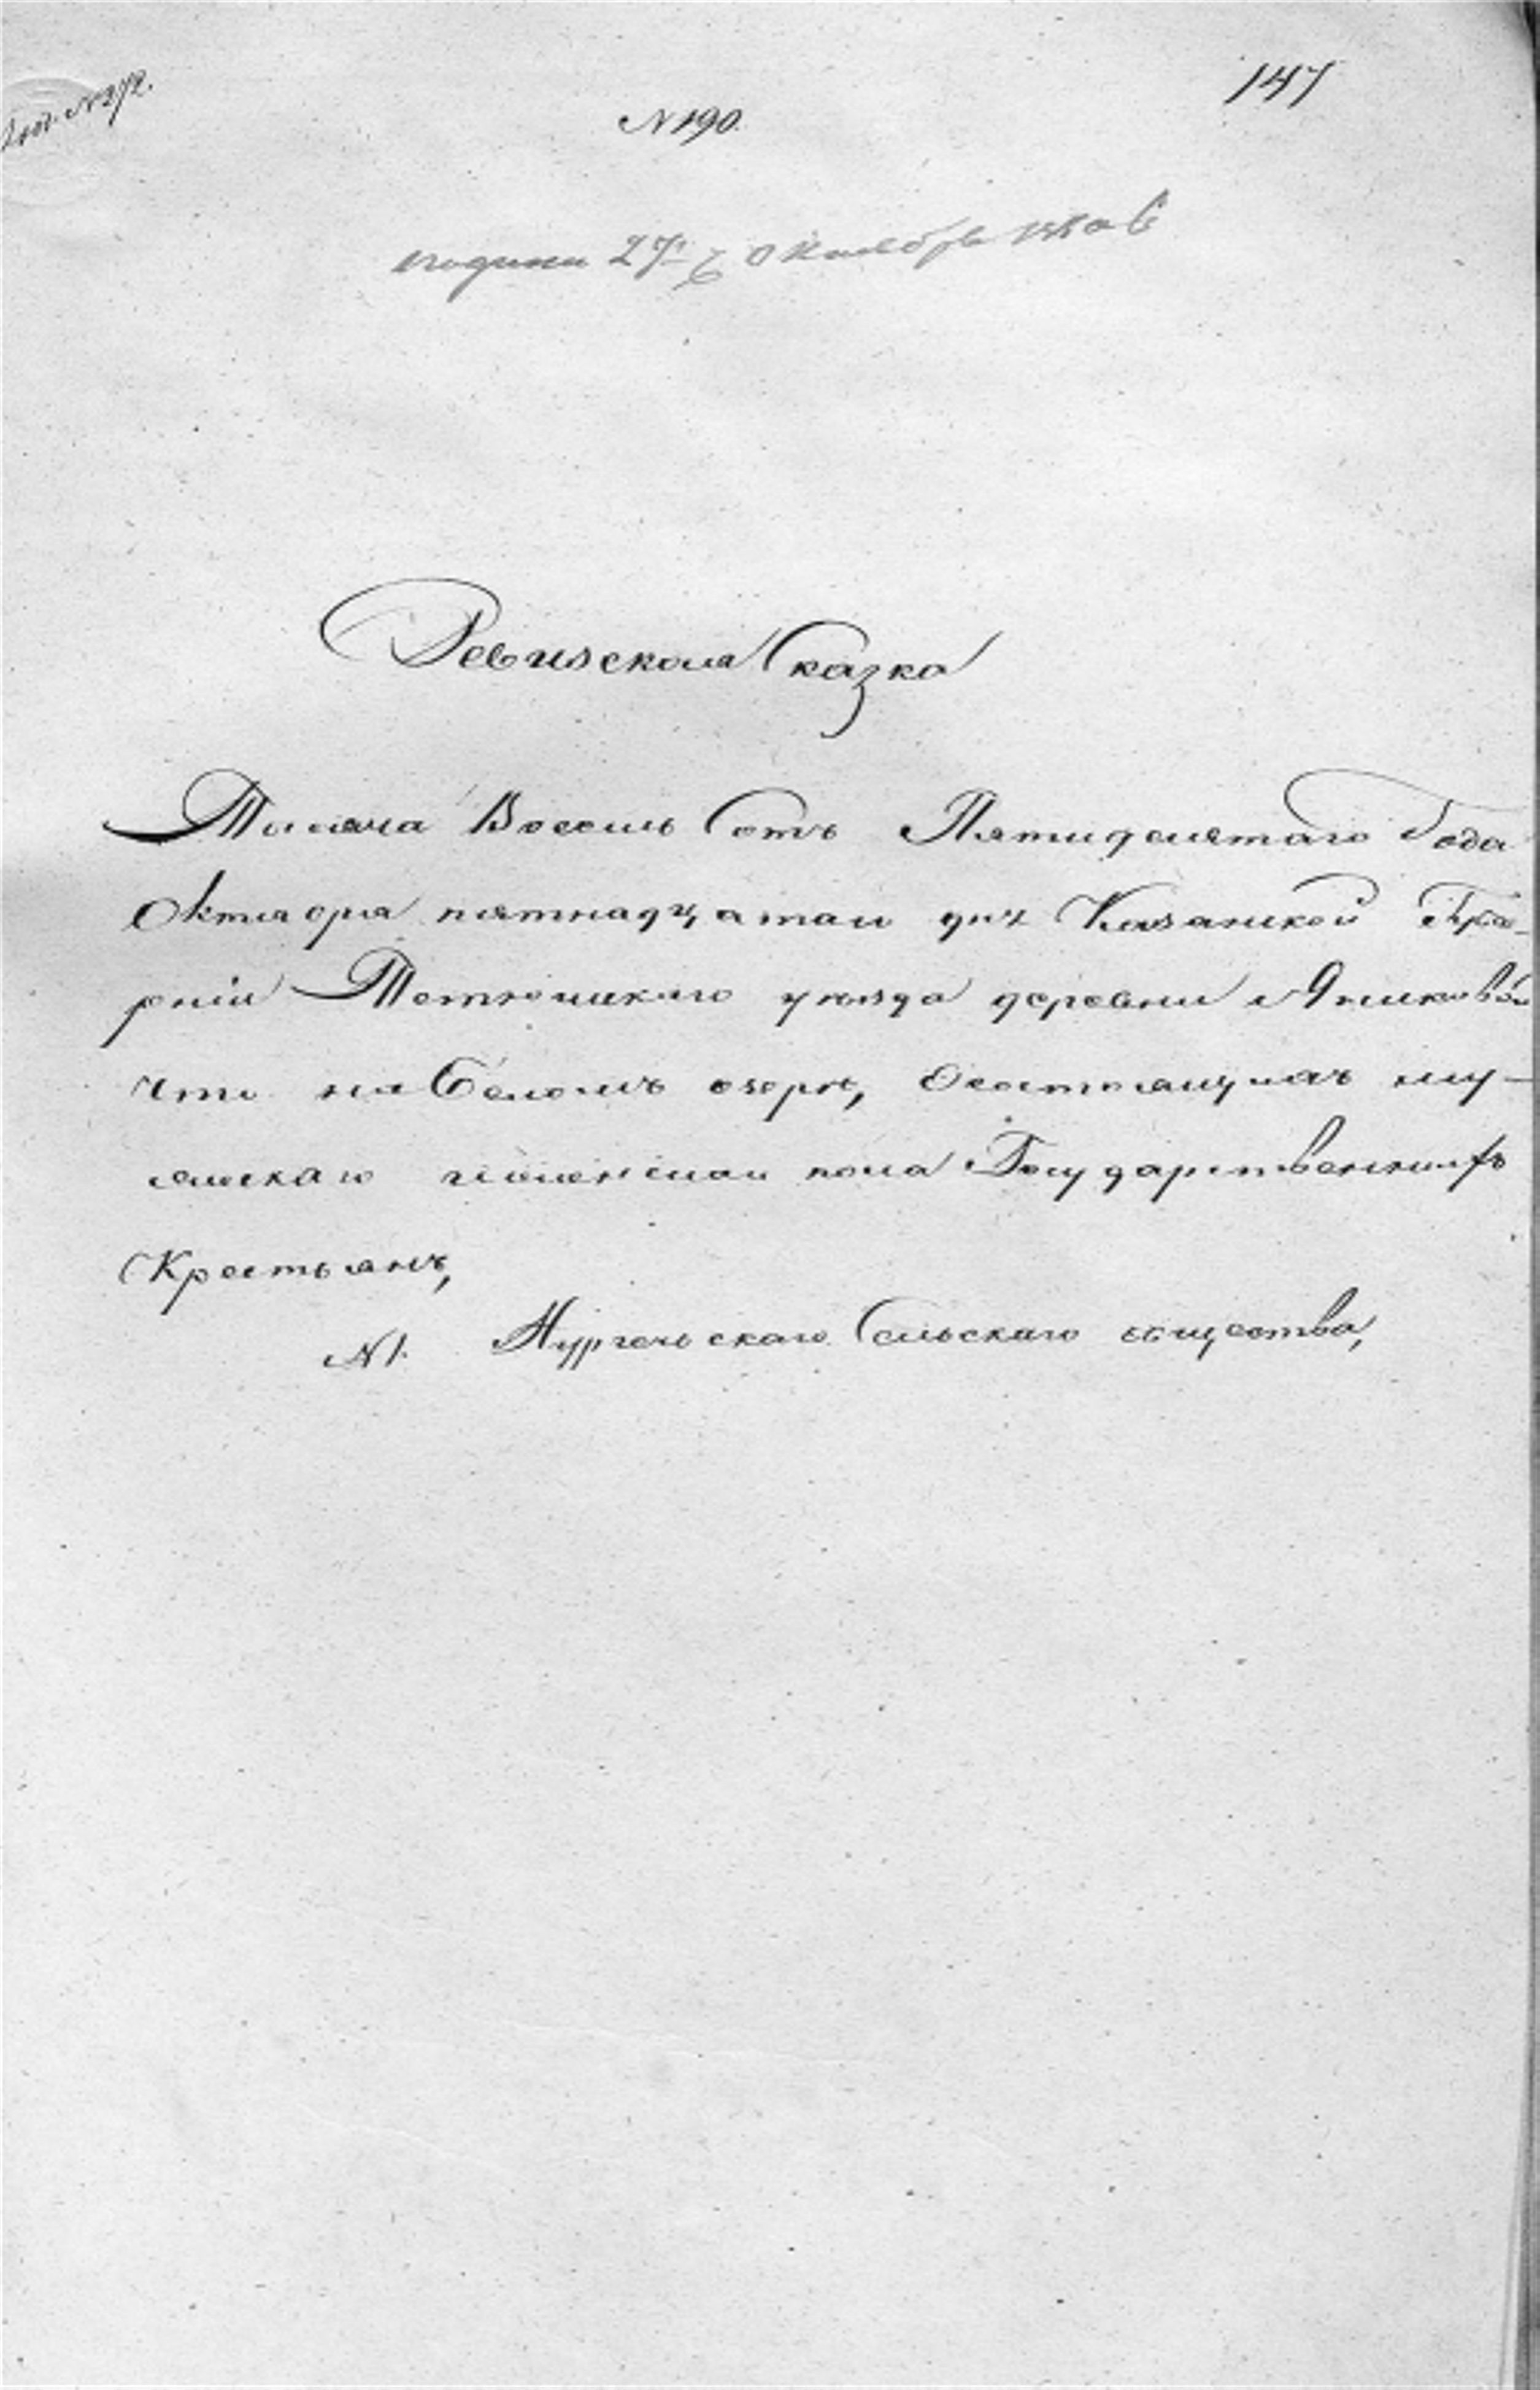 № 272.
147
№ 190.
подана 27 октября 1850
Ревизская Сказка
Тысяча Восемь Сотъ Пятидесятаго Года
Октября пятнадцатаго дня Казанской Губе-
рніи Тетюшскаго уезда деревни
что на Беломъ озере, о состоящихъ му-
жескаго и женскаго пола Государственныхъ
Крестьянъ,
№ 1. Сельскаго общества,